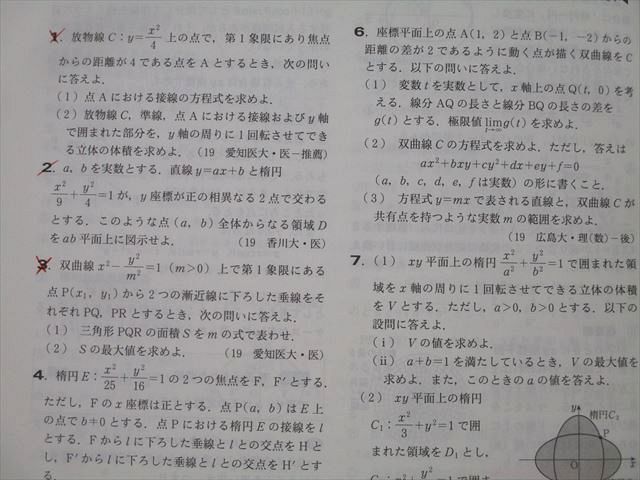 1. 放物線C:y=x²/4 上の点で，第1象限にあり焦点
からの距離が4である点をAとするとき，次の問い
に答えよ．
(1) 点Aにおける接線の方程式を求めよ．
(2) 放物線C，準線，点Aにおける接線およびy軸
で囲まれた部分を，y軸の周りに1回転させてでき
る立体の体積を求めよ．(19 愛知医大・医－推薦)
2. a，bを実数とする．直線y=ax+bと楕円
x²/9+y²/4=1が，y座標が正の相異なる2点で交わる
とする．このような点(a，b)全体からなる領域D
をab平面上に図示せよ． (19 香川大・医)
3. 双曲線x²-y²/m²=1(m>0)上で第1象限にある
点P(x₁，y₁)から2つの漸近線に下ろした垂線をそ
れぞれPQ，PRとするとき，次の問いに答えよ．
(1) 三角形PQRの面積Sをmの式で表わせ．
(2) Sの最大値を求めよ． (19 愛知医大・医)
4. 楕円E:x²/25+y²/16=1の2つの焦点をF，F′とする．
ただし，Fのx座標は正とする．点P(a，b)はE上
の点でb≠0とする．点Pにおける楕円Eの接線をl
とする．Fからlに下ろした垂線とlとの交点をHと
し，F′からlに下ろした垂線とlとの交点をH′とす
る．
6. 座標平面上の点A(1，2)と点B(-1，-2)からの
距離の差が2であるように動く点が描く双曲線をC
とする．以下の問いに答えよ．
(1) 変数tを実数として，x軸上の点Q(t，0)を考
える．線分AQの長さと線分BQの長さの差を
g(t)とする．極限値lim t→∞ g(t)を求めよ．
(2) 双曲線Cの方程式を求めよ．ただし，答えは
ax²+bxy+cy²+dx+ey+f=0
(a，b，c，d，e，fは実数)の形に書くこと．
(3) 方程式y=mxで表される直線と，双曲線Cが
共有点を持つような実数mの範囲を求めよ．
(19 広島大・理(数)－後)
7. (1) xy平面上の楕円x²/a²+y²/b²=1で囲まれた領
域をx軸の周りに1回転させてできる立体の体積
をVとする．ただし，a>0，b>0とする．以下の
設問に答えよ．
(i) Vの値を求めよ．
(ii) a+b=1を満たしているとき，Vの最大値を
求めよ．また，このときのaの値を答えよ．
(2) xy平面上の楕円
C₁:x²/3+y²=1で囲
まれた領域をD₁とし，
y
楕円C₂
P
O
x